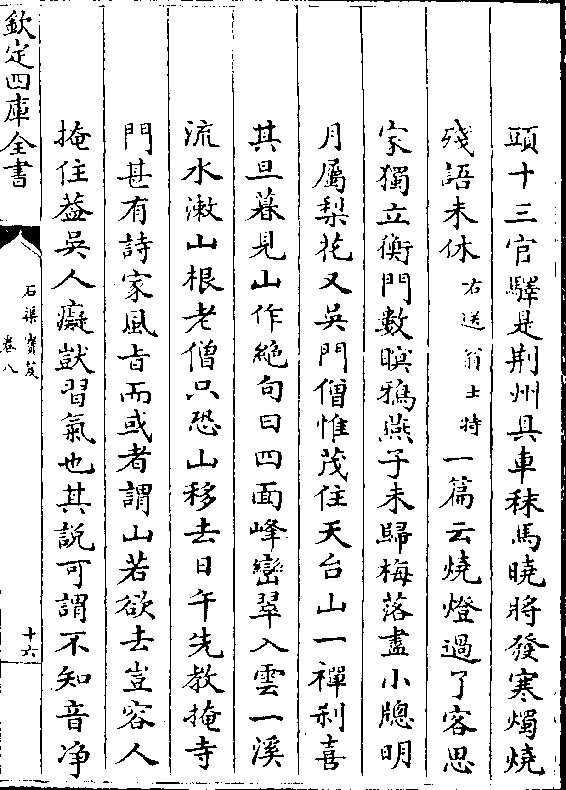 頭十三官驛是荆州具車秣馬曉將發寒燭燒
殘語未休右送翁士特一篇云燒燈過了客思
家獨立衡門數暝鴉燕子未歸梅落盡小牕明
月屬梨花又吳門僧惟茂住天台山一禪刹喜
其旦暮見山作絶句曰四面峰巒翠入雲一溪
流水漱山根老僧只恐山移去日午先教掩寺
門甚有詩家風旨而或者謂山若欲去豈容人
掩住葢吳人癡獃習氣也其説可謂不知音净
欽定四庫全書
石渠寳笈
卷八
十六